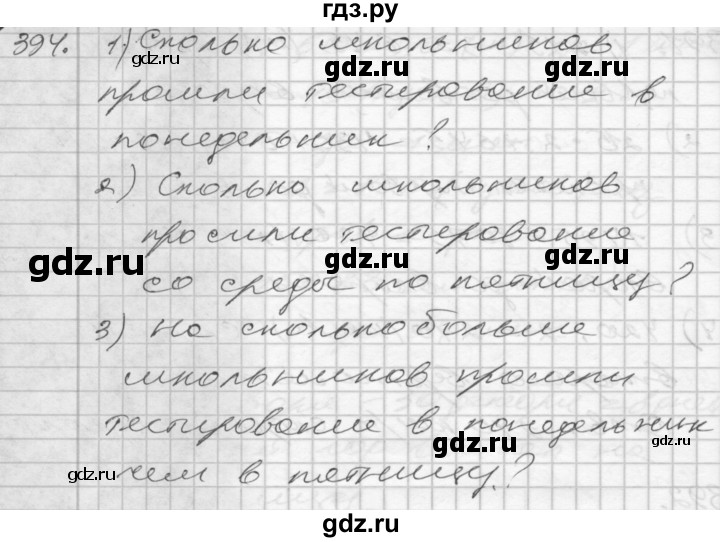 гдз.ру
394. 1) Сколько школьников
gdz.ru gdz.ru
прошли тестирование в
gdz.ru gdz.ru
понедельник?
2) Сколько школьников
просили тестирование
gdz.ru gdz.ru gdz.ru
со среды по пятницу?
3) На сколько больше
gdz.ru gdz.ru
школьников прошли
тестирование в понедельник
gdz.ru gdz.ru
чем в пятницу?
gdz.ru gdz.ru
gdz.ru